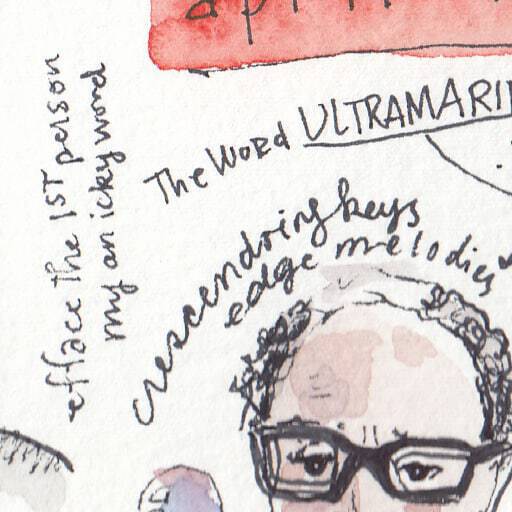 efface the 1ST person
my an icky word
The Word ULTRAMARI
crescendoing keys
edge melodies